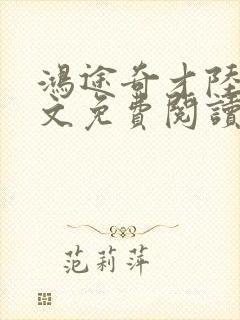 鴻途奇才陸
文免費閱讀
范莉萍